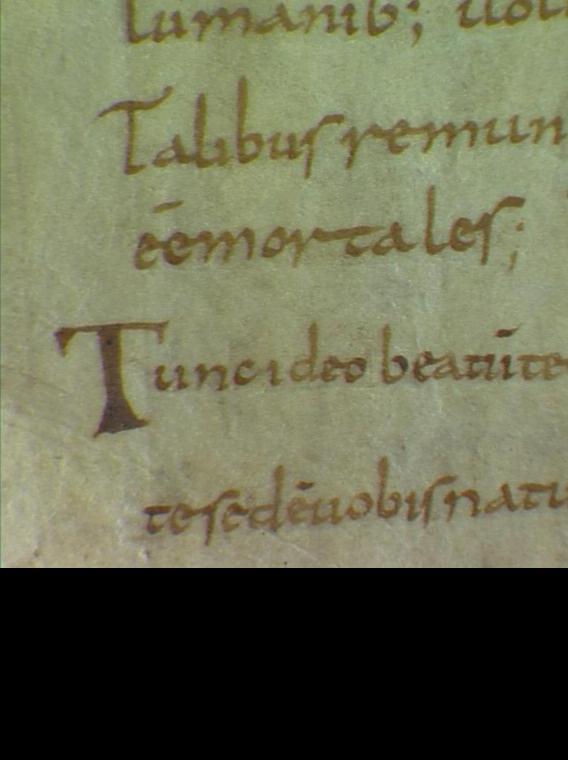 lumanib;
Talibus remun
ēemortales;
Tunc ideo beatū te
te sedēuobis natu